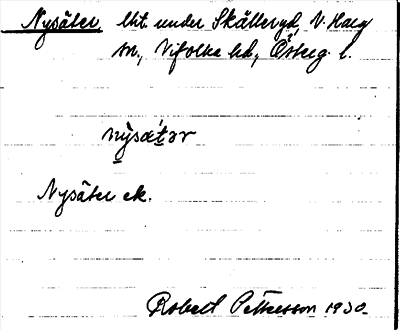 Nysäter lht. under Skålleryd, V. Harg
sn., Vifolka hd., Österg. l.
nỳsæ̀tər
Nysäter ek.
Robert Pettersson 1930